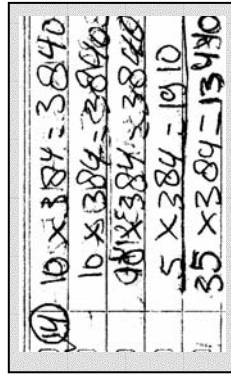 (14) 10 x 384 = 3840
10 x 384 = 3840
10 x 384 = 3840
5 x 384 = 1910
35 x 384 = 13440